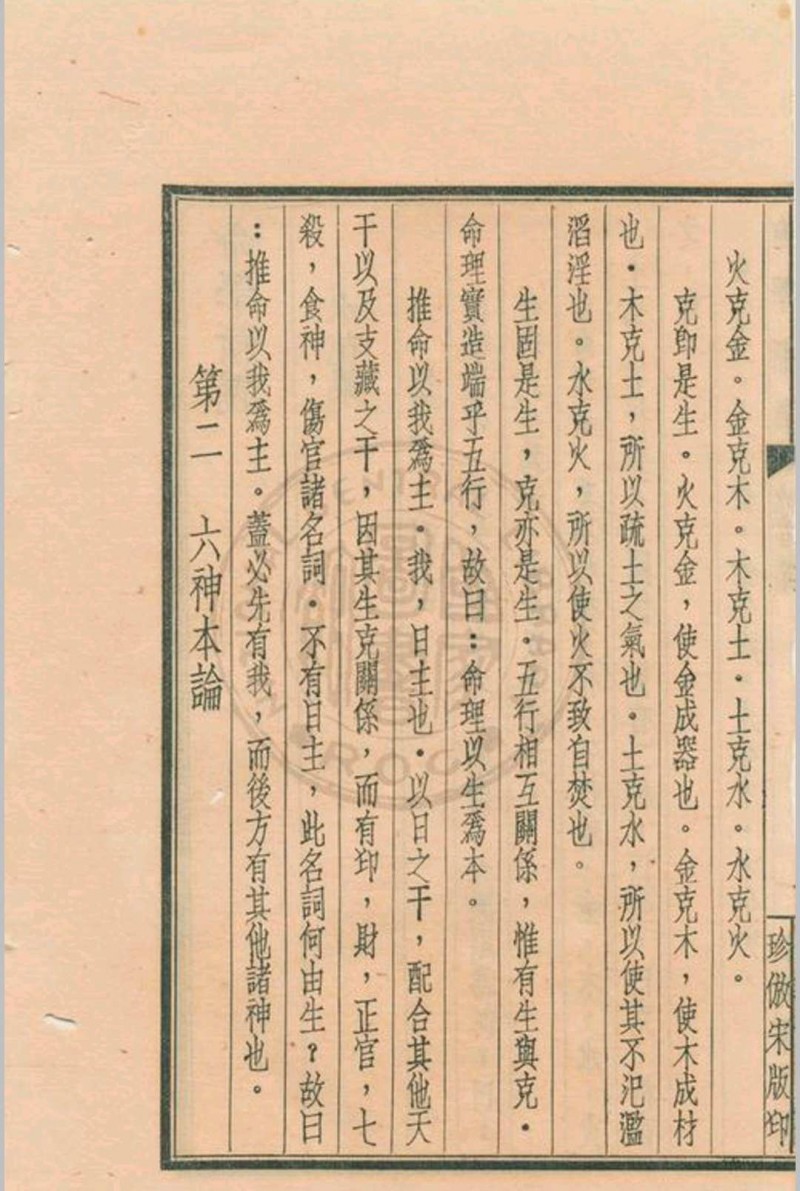 珍倣宋版印
火克金。金克木。木克土．土克水。水克火。
克卽是生。火克金，使金成器也。金克木，使木成材
也．木克土，所以疏土之氣也．土克水，所以使其不氾濫
滔淫也。水克火，所以使火不致自焚也。
生固是生，克亦是生．五行相互關係，惟有生與克．
命理實造端乎五行，故曰：命理以生爲本。
推命以我爲主．我，日主也．以日之干，配合其他天
干以及支藏之干，因其生克關係，而有印，財，正官，七
殺，食神，傷官諸名詞．不有日主，此名詞何由生？故曰
：推命以我爲主。蓋必先有我，而後方有其他諸神也。
第二　六神本論